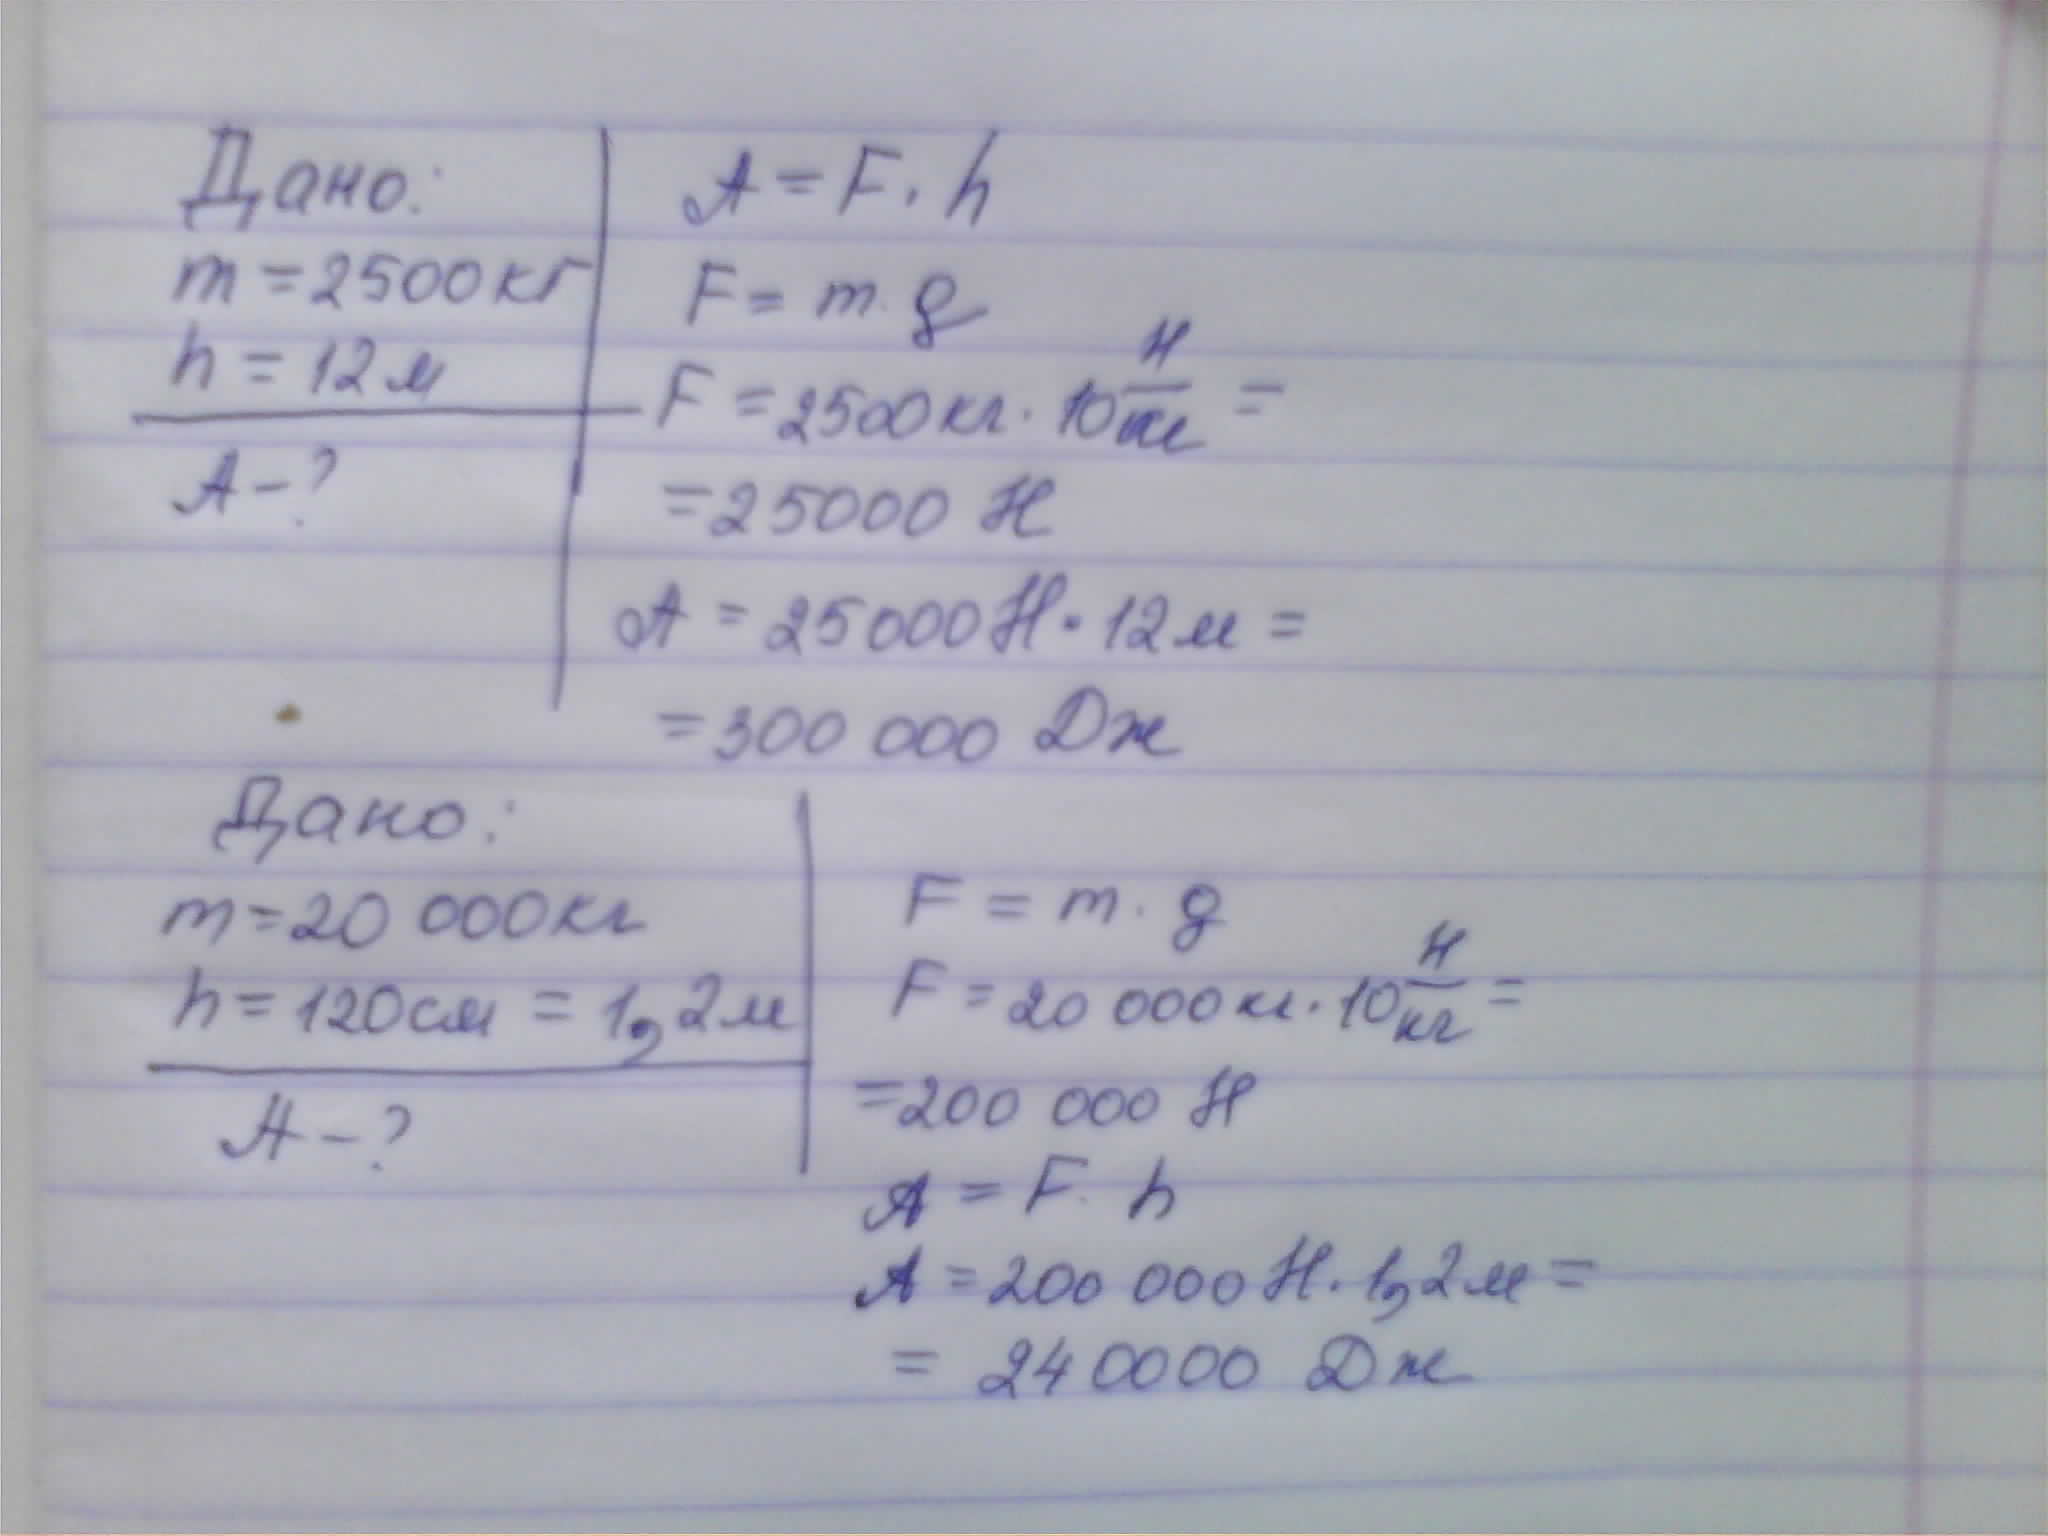 Дано:
m = 2500 кг
h = 12 м
A - ?
A = F · h
F = m · g
F = 2500 кг · 10 Н/кг =
= 25000 Н
A = 25000 Н · 12 м =
= 300 000 Дж
Дано:
m = 20 000 кг
h = 120 см = 1,2 м
A - ?
F = m · g
F = 20 000 кг · 10 Н/кг =
= 200 000 Н
A = F · h
A = 200 000 Н · 1,2 м =
= 240000 Дж